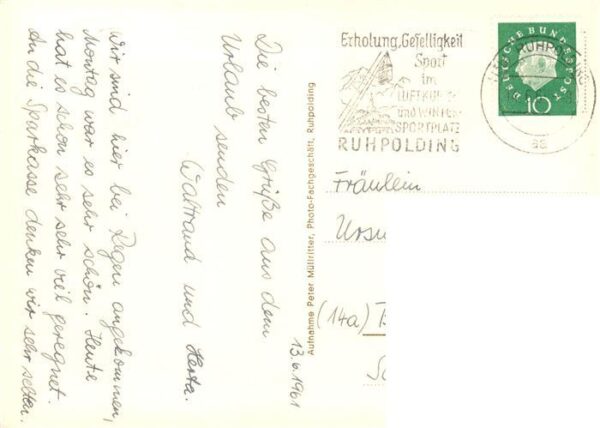 Die besten Grüße aus dem
Urlaub senden
Waltraud und Herta.
Wir sind hier bei Regen angekommen,
Montag war es sehr schön. Heute
hat es schon sehr sehr viel geregnet.
An die Sparkasse denken wir sehr selten.
13.6.1961
Aufnahme Peter Müllritter, Photo-Fachgeschäft, Ruhpolding
Erholung, Geselligkeit
Sport
im
LUFTKUR-
und WINTER-
SPORTPLATZ
RUHPOLDING
RUHPOLDING
aa
DEUTSCHE BUNDESPOST
10
Fräulein
Ursu
(14a)